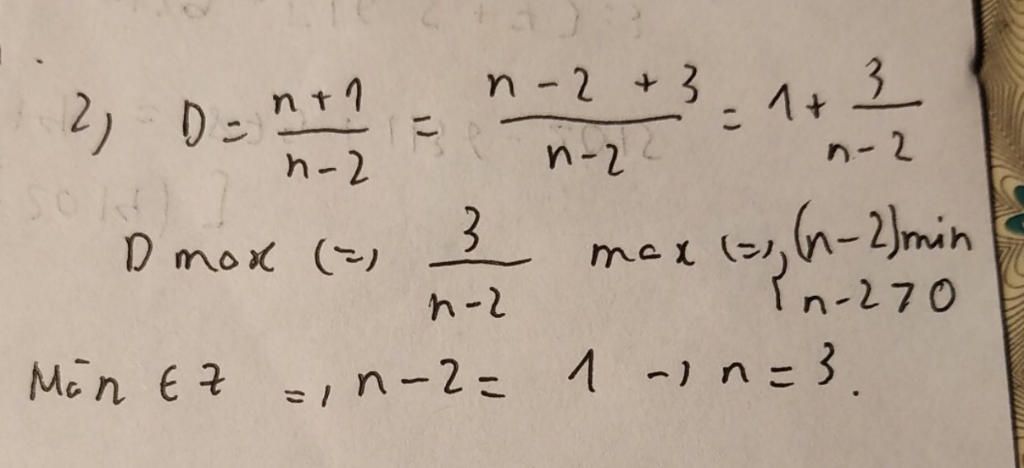 2) D = \frac{n+1}{n-2} = \frac{n-2+3}{n-2} = 1 + \frac{3}{n-2}
D max (=) \frac{3}{n-2} max (=) { (n-2) min
n-2 > 0
Mà n ∈ Z =) n-2 = 1 -) n = 3.